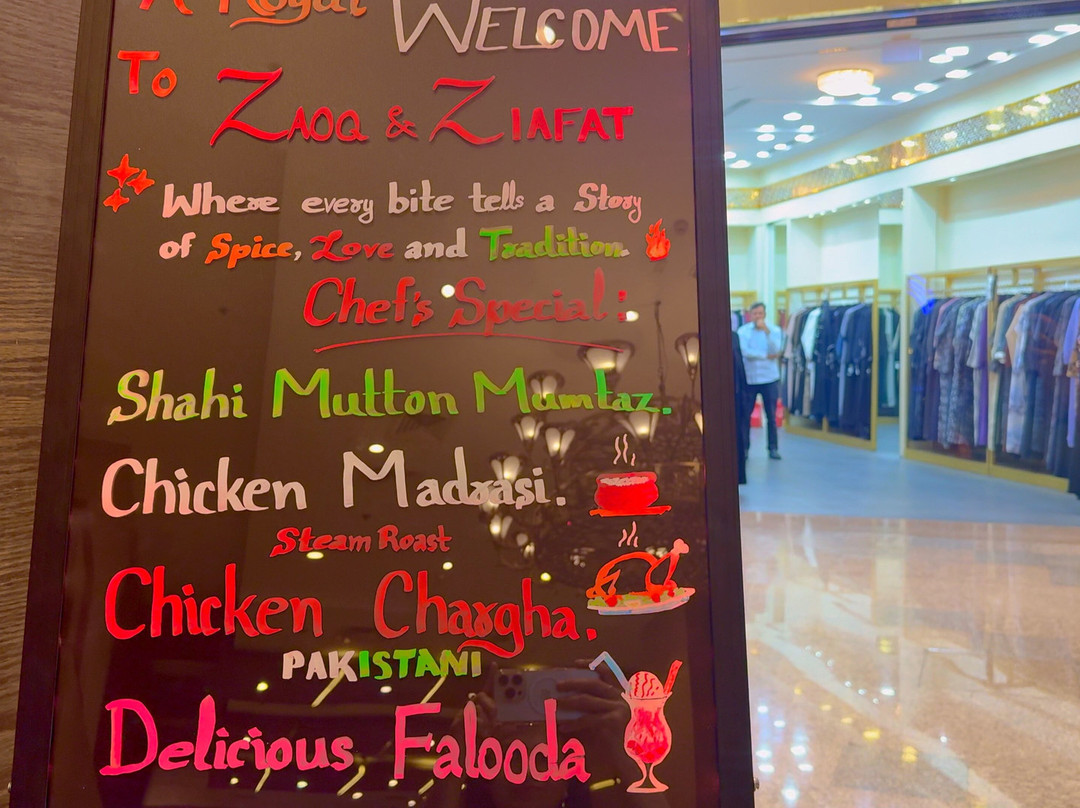 A Royal WELCOME
TO
ZAOQ & ZIAFAT
Where every bite tells a Story
of Spice, Love and Tradition.
Chef's Special:
Shahi Mutton Mumtaz.
Chicken Madrasi.
Steam Roast
Chicken Chargha.
PAKISTANI
Delicious Falooda